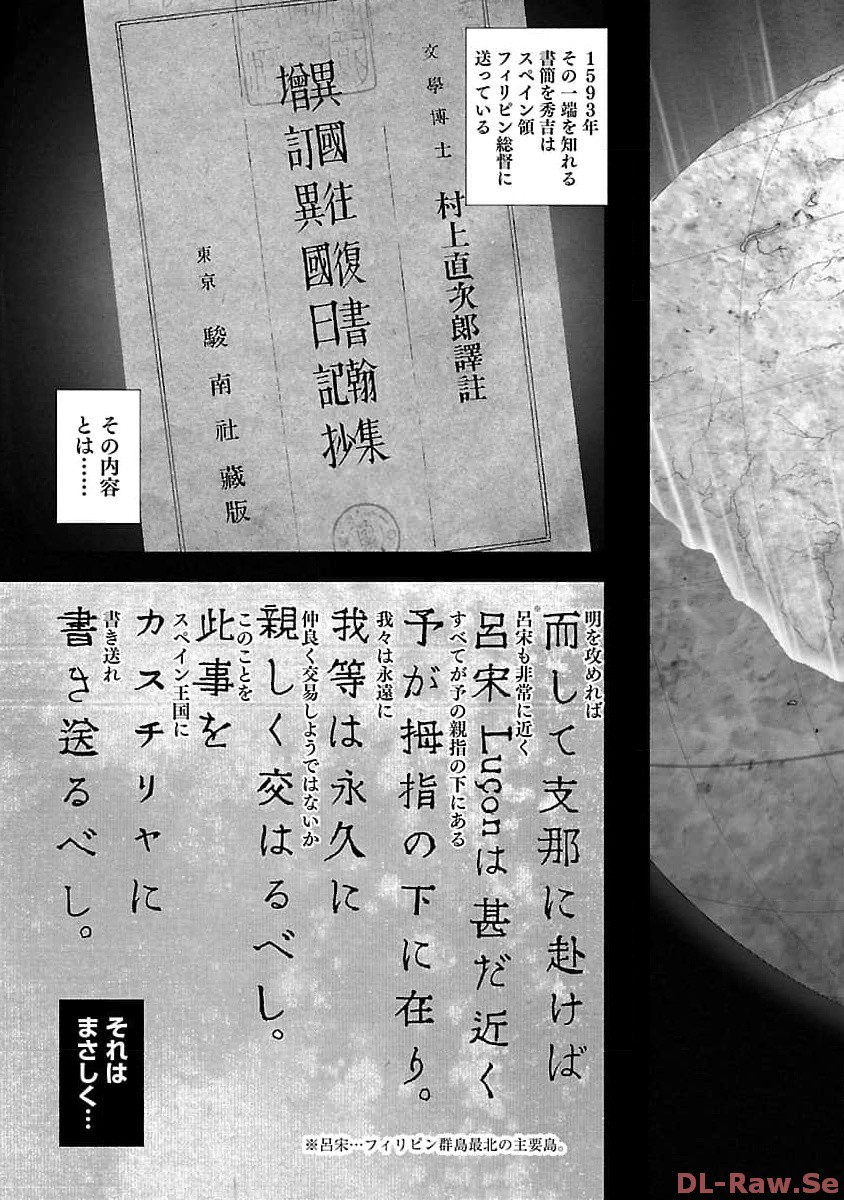 1593年
その一端を知れる
書簡を秀吉は
スペイン領
フィリピン総督に
送っている
文學博士 村上直次郎譯註
異國往復書翰集
增訂異國日記抄
東京 駿南社藏版
その内容
とは……
明を攻めれば
而して支那に赴けば
※呂宋も非常に近く
呂宋Luçonは甚だ近く
すべてが予の親指の下にある
予が拇指の下に在り。
我々は永遠に
我等は永久に
仲良く交易しようではないか
親しく交はるべし。
このことを
此事を
スペイン王国に
カスチリヤに
書き送れ
書き送るべし。
それは
まさしく…
※呂宋…フィリピン群島最北の主要島。
DL-Raw.Se